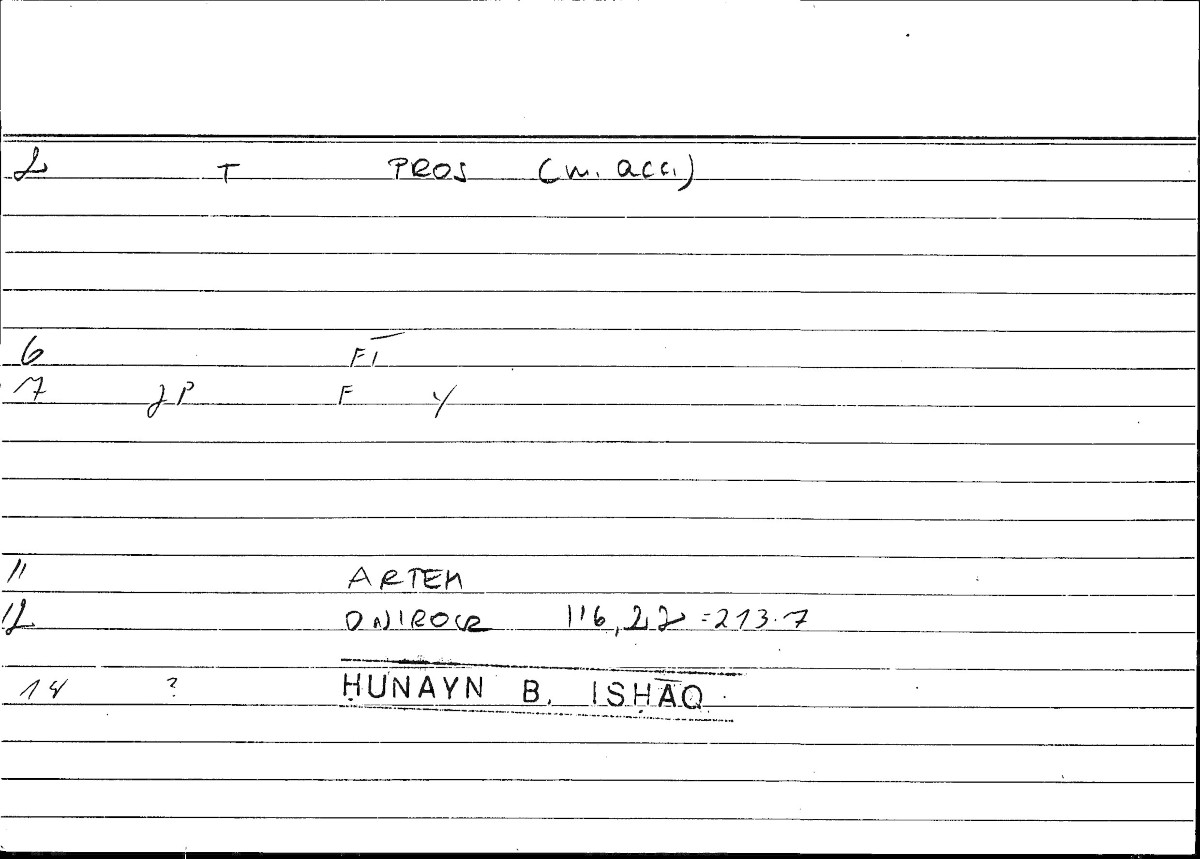 2 T PROS (m. acc.)
6 FĪ
7 JP F Y
11 ARTEM
12 ONIROCR 116,22 = 213.7
14 ? ḤUNAYN B. ISḤĀQ